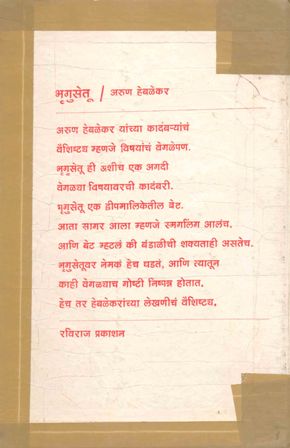 भृगुसेतू / अरुण हेबळेकर
अरुण हेबळेकर यांच्या कादंबऱ्यांचं
वैशिष्ट्य म्हणजे विषयांचं वेगळेपण.
भृगुसेतू ही अशीच एक अगदी
वेगळ्या विषयावरची कादंबरी.
भृगुसेतू एक द्वीपमालिकेतील बेट.
आता सागर आला म्हणजे स्मगलिंग आलंच.
आणि बेट म्हटलं की बंडाळीची शक्यताही असतेच.
भृगुसेतूवर नेमकं हेच घडतं, आणि त्यातून
काही वेगळ्याच गोष्टी निष्पन्न होतात.
हेच तर हेबळेकरांच्या लेखणीचं वैशिष्ट्य.
रविराज प्रकाशन